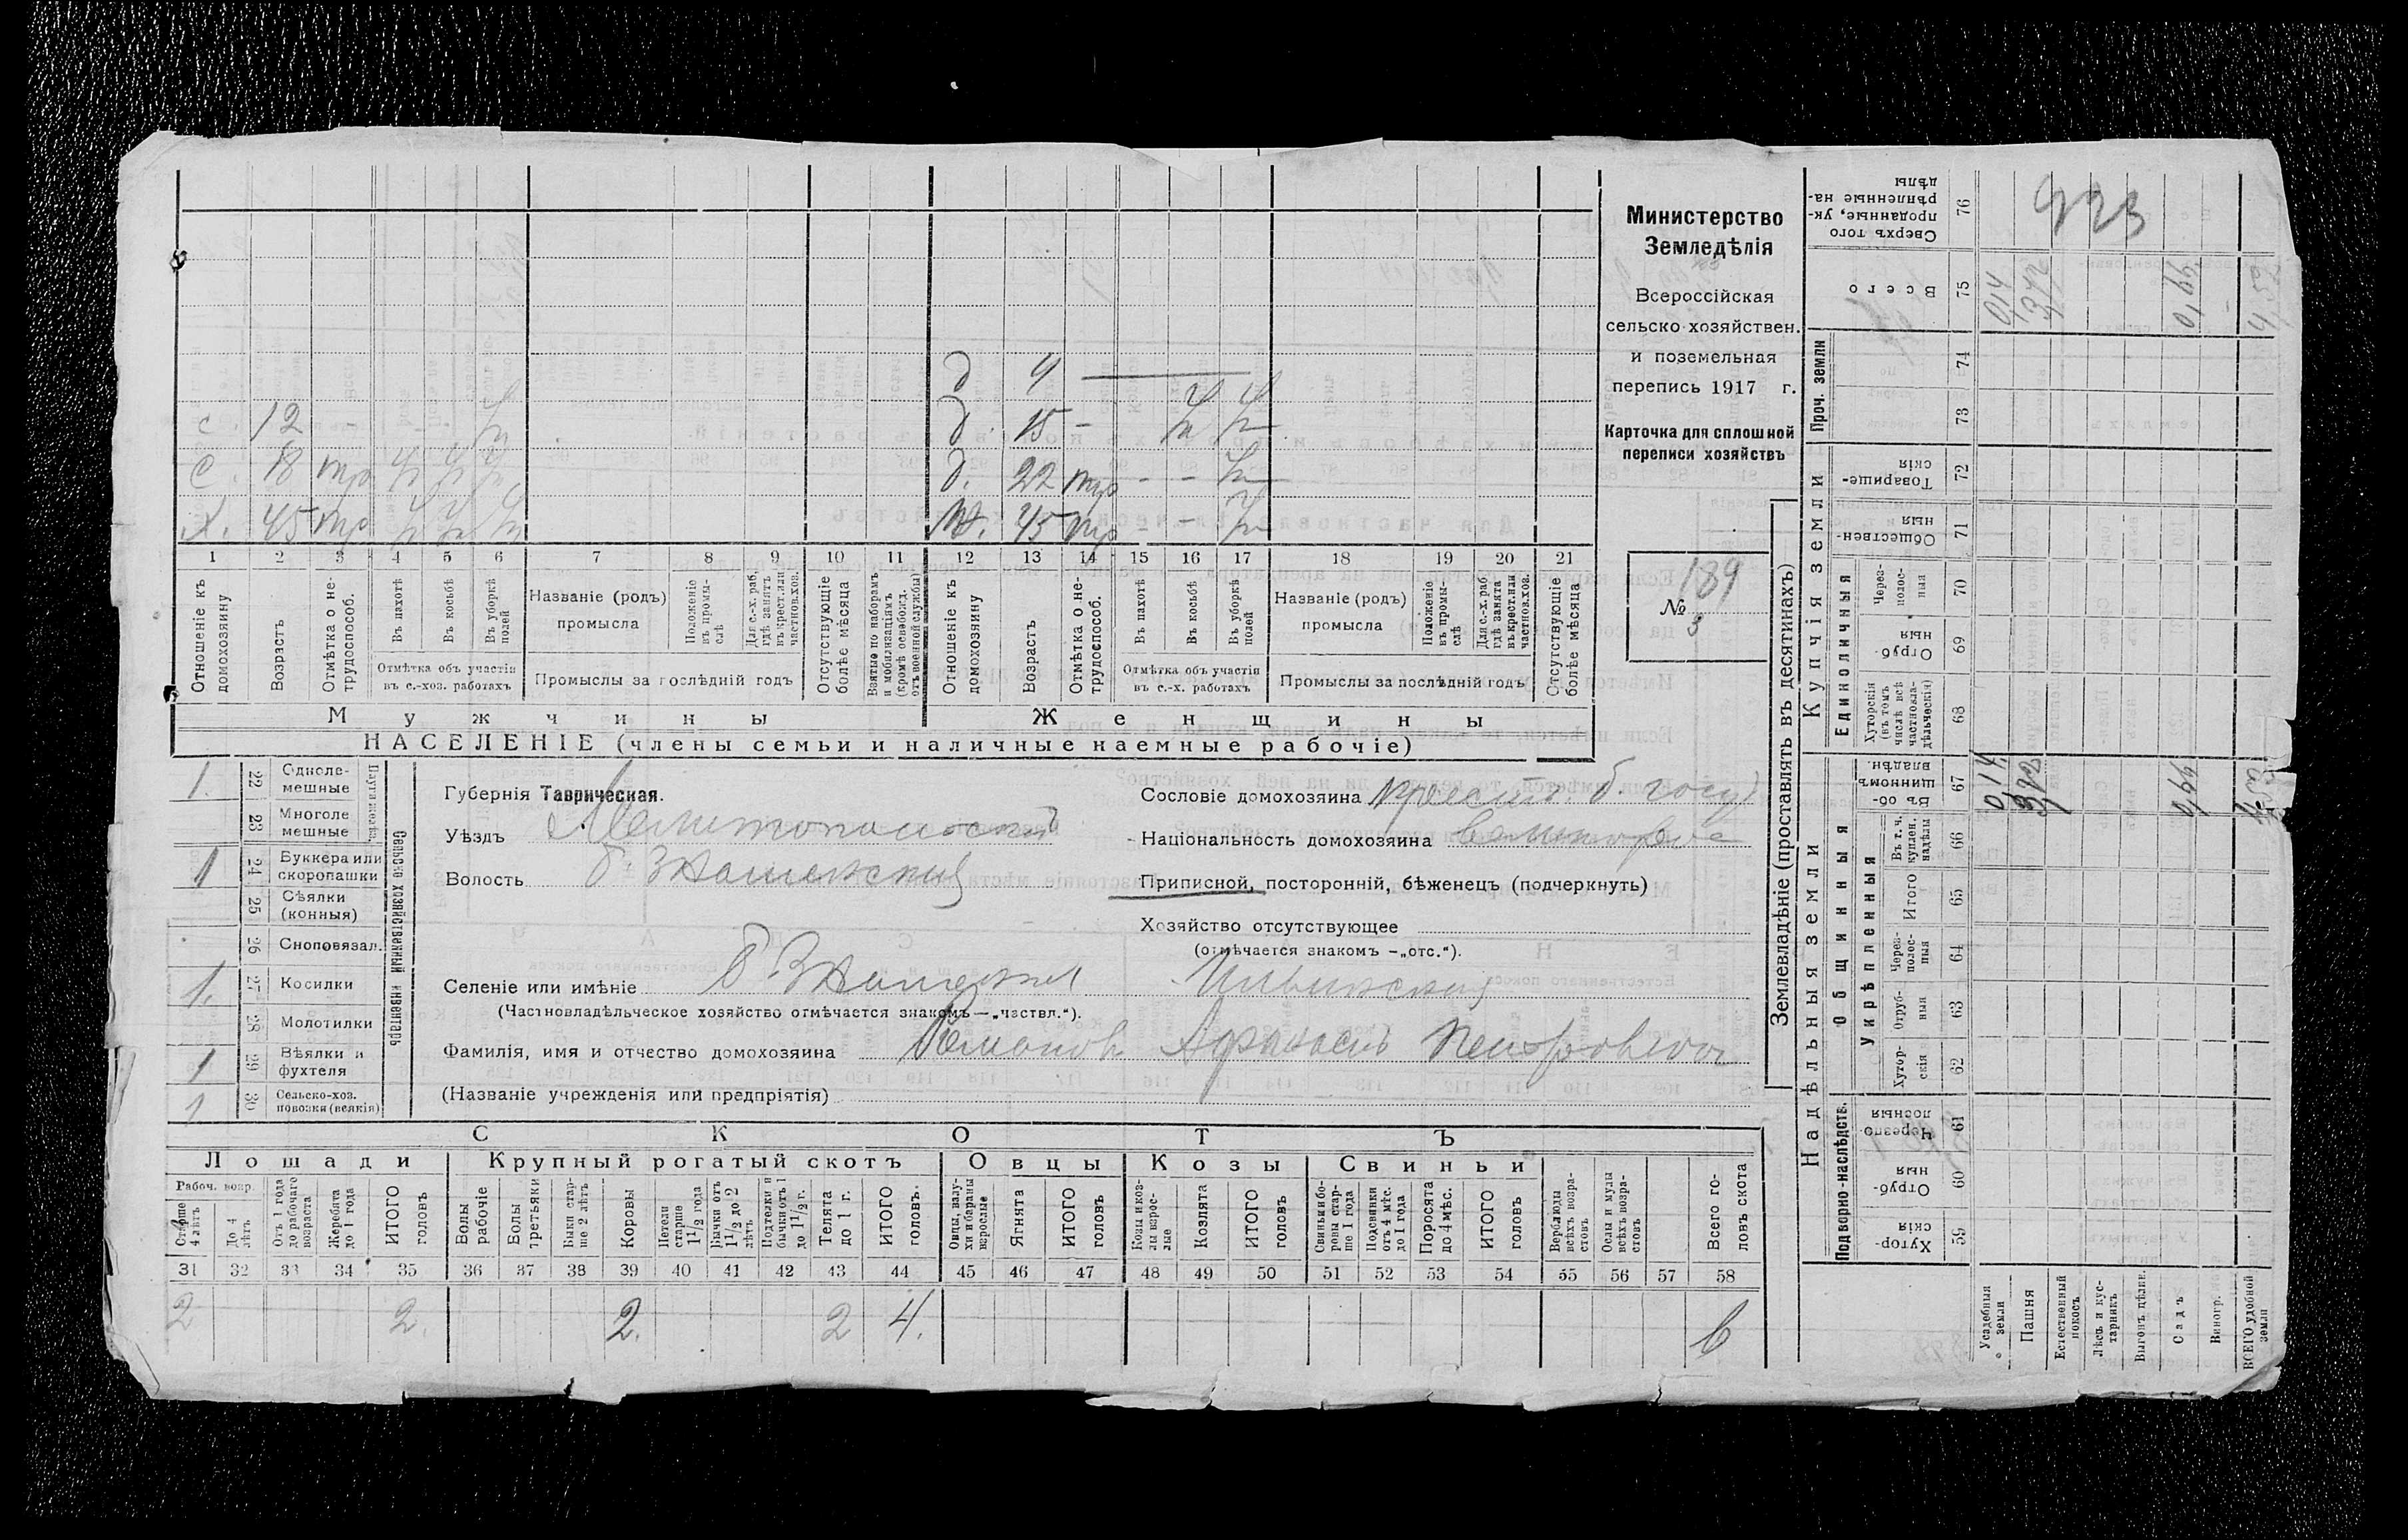 Министерство
Земледѣлія
Всероссійская
сельско хозяйствен.
и поземельная
перепись 1917 г.
Карточка для сплошной
переписи хозяйствъ
№ 189
3
д 9
с. 12 - д. 15 -
с. 18 тр д. 22 тр - -
х. 45 тр ж. 45 тр - -
1 2 3 4 5 6 7 8 9 10 11 12 13 14 15 16 17 18 19 20 21
Отношеніе къ домохозяину
Возрастъ
Отмѣтка о не-трудоспособ.
Въ пахотѣ
Въ косьбѣ
Въ уборкѣ полей
Отмѣтка объ участіи
въ с.-хоз. работахъ
Названіе (родъ)
промысла
Положеніе въ промы-слѣ
Для с.-х. раб. гдѣ занятъ въ крест. или частнов. хоз.
Промыслы за послѣдній годъ
Отсутствующіе болѣе мѣсяца
Взятые по наборамъ и мобилизаціямъ (кромѣ освобожд. отъ военной службы)
Отношеніе къ домохозяину
Возрастъ
Отмѣтка о не-трудоспособ.
Въ пахотѣ
Въ косьбѣ
Въ уборкѣ полей
Отмѣтка объ участіи
въ с.-х. работахъ
Названіе (родъ)
промысла
Положеніе въ промы-слѣ
Для с.-х. раб. гдѣ занята въ крест. или частнов. хоз.
Промыслы за послѣдній годъ
Отсутствующіе болѣе мѣсяца
Мужчины Женщины
НАСЕЛЕНІЕ (члены семьи и наличные наемные рабочіе)
Сельско хозяйственный инвентарь
1. 22 Одноле-мешные
23 Многоле мешные
1 24 Буккера или скоропашки
25 Сѣялки (конныя)
26 Сноповязал.
1. 27 Косилки
28 Молотилки
1 29 Вѣялки и фухтеля
1 30 Сельско-хоз. повозки (всякія)
Губернія Таврическая.
Уѣздъ Мелитопольскій
Волость Б. Знаменская
Селеніе или имѣніе Б Знаменка Ильинская
(Частновладѣльческое хозяйство отмѣчается знакомъ — „частвл.“).
Фамилія, имя и отчество домохозяина Романовъ Афанасій Петровичъ
(Названіе учрежденія или предпріятія)
Сословіе домохозяина крест. б. госуд
Національность домохозяина великоросс
Приписной, посторонній, бѣженецъ (подчеркнуть)
Хозяйство отсутствующее
(отмѣчается знакомъ —„отс.“).
СКОТЪ
Лошади Крупный рогатый скотъ Овцы Козы Свиньи
Рабоч. возр.
Старше 4 лѣтъ
До 4 лѣтъ
Отъ 1 года до рабочаго возраста
Жеребята до 1 года
ИТОГО головъ
Волы рабочіе
Волы третьяки
Быки стар-ше 2 лѣтъ
Коровы
Нетели старше 1 1/2 года
Бычки отъ 1 1/2 до 2 лѣтъ
Подтелки и бычки отъ 1 до 1 1/2 г.
Телята до 1 г.
ИТОГО головъ.
Овцы, валу-хи и бараны взрослые
Ягнята
ИТОГО головъ
Козы и коз-лы взрос-лые
Козлята
ИТОГО головъ
Свиньи бо-ровы стар-ше 1 года
Подсвинки отъ 4 мѣс. до 1 года
Поросята до 4 мѣс.
ИТОГО головъ
Верблюды всѣхъ возра-стовъ
Ослы и мулы всѣхъ возра-стовъ
Всего го-ловъ скота
31 32 33 34 35 36 37 38 39 40 41 42 43 44 45 46 47 48 49 50 51 52 53 54 55 56 57 58
2 2. 2. 2 4. 6
Землевладѣніе (проставлять въ десятинахъ)
Надѣльныя земли
Купчія земли
Проч. земли
Подворно-наслѣдств.
Общинныя
Укрѣпленныя
Единоличныя
Хутор-скія 59
Отруб-ныя 60
Черезпо-лосныя 61
Хутор-скія 62
Отруб-ныя 63
Черезполос-ныя 64
Итого 65
Въ т. ч. куплен. надѣлы 66
Въ об-щинномъ владѣн. 67
Хуторскія (въ томъ числѣ всѣ частновла-дѣльческія) 68
Отруб-ныя 69
Через-полос-ныя 70
Обществен-ныя 71
Товарище-скія 72
73
74
Всего 75
Сверхъ того проданные, ук-рѣпленные на-дѣлы 76
Усадебныя земли
Пашня
Естественный покосъ
Лѣсъ и кус-тарникъ
Выгонъ цѣлин.
Садъ
Виногр.
ВСЕГО удобной земли
923